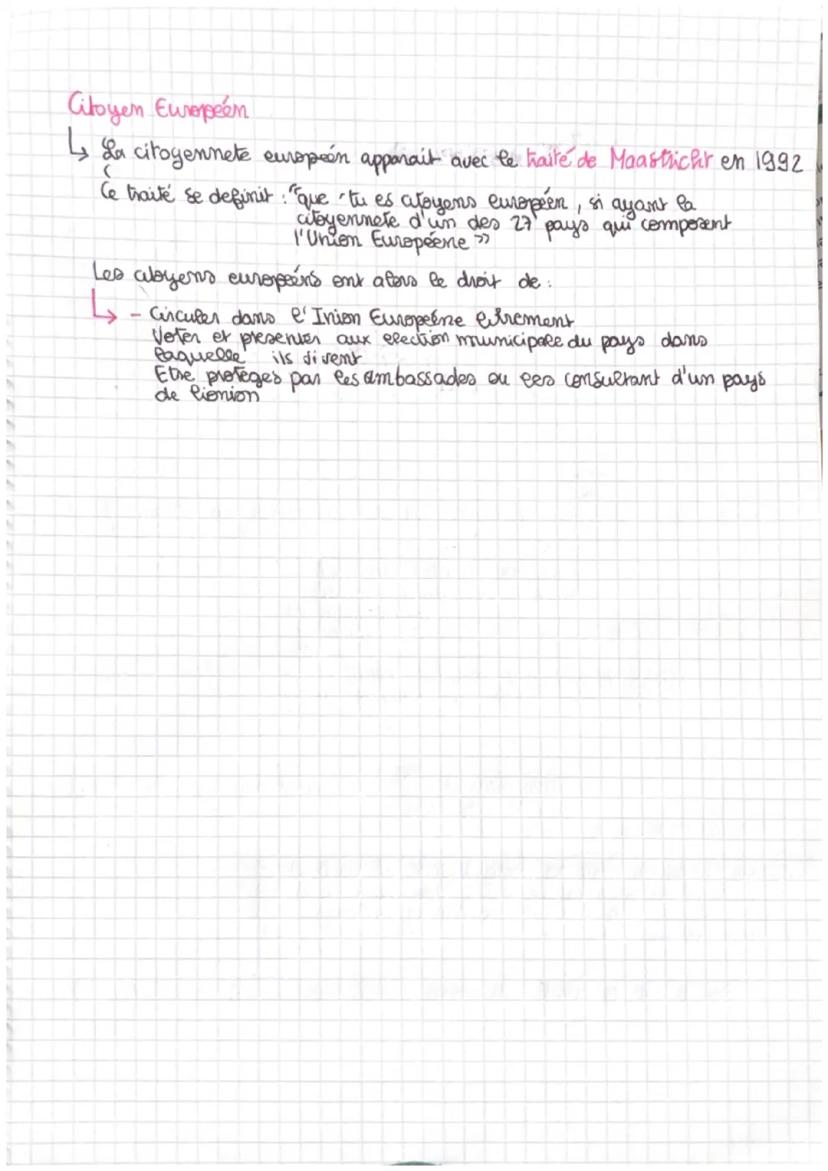 Citoyen Européen
↳ La citoyennete européen apparait avec le traité de Maastricht en 1992
Ce traité se definit : "que tu es citoyens européen, si ayant la
citoyennete d'un des 27 pays qui composent
l'Union Européene »
Les citoyens européens ont alors le droit de :
↳ - Circuler dans l'Inion Européene librement
Voter et presenter aux election municipale du pays dans
laquelle ils vivent
Etre proteges par les ambassades ou les consultant d'un pays
de l'ionion